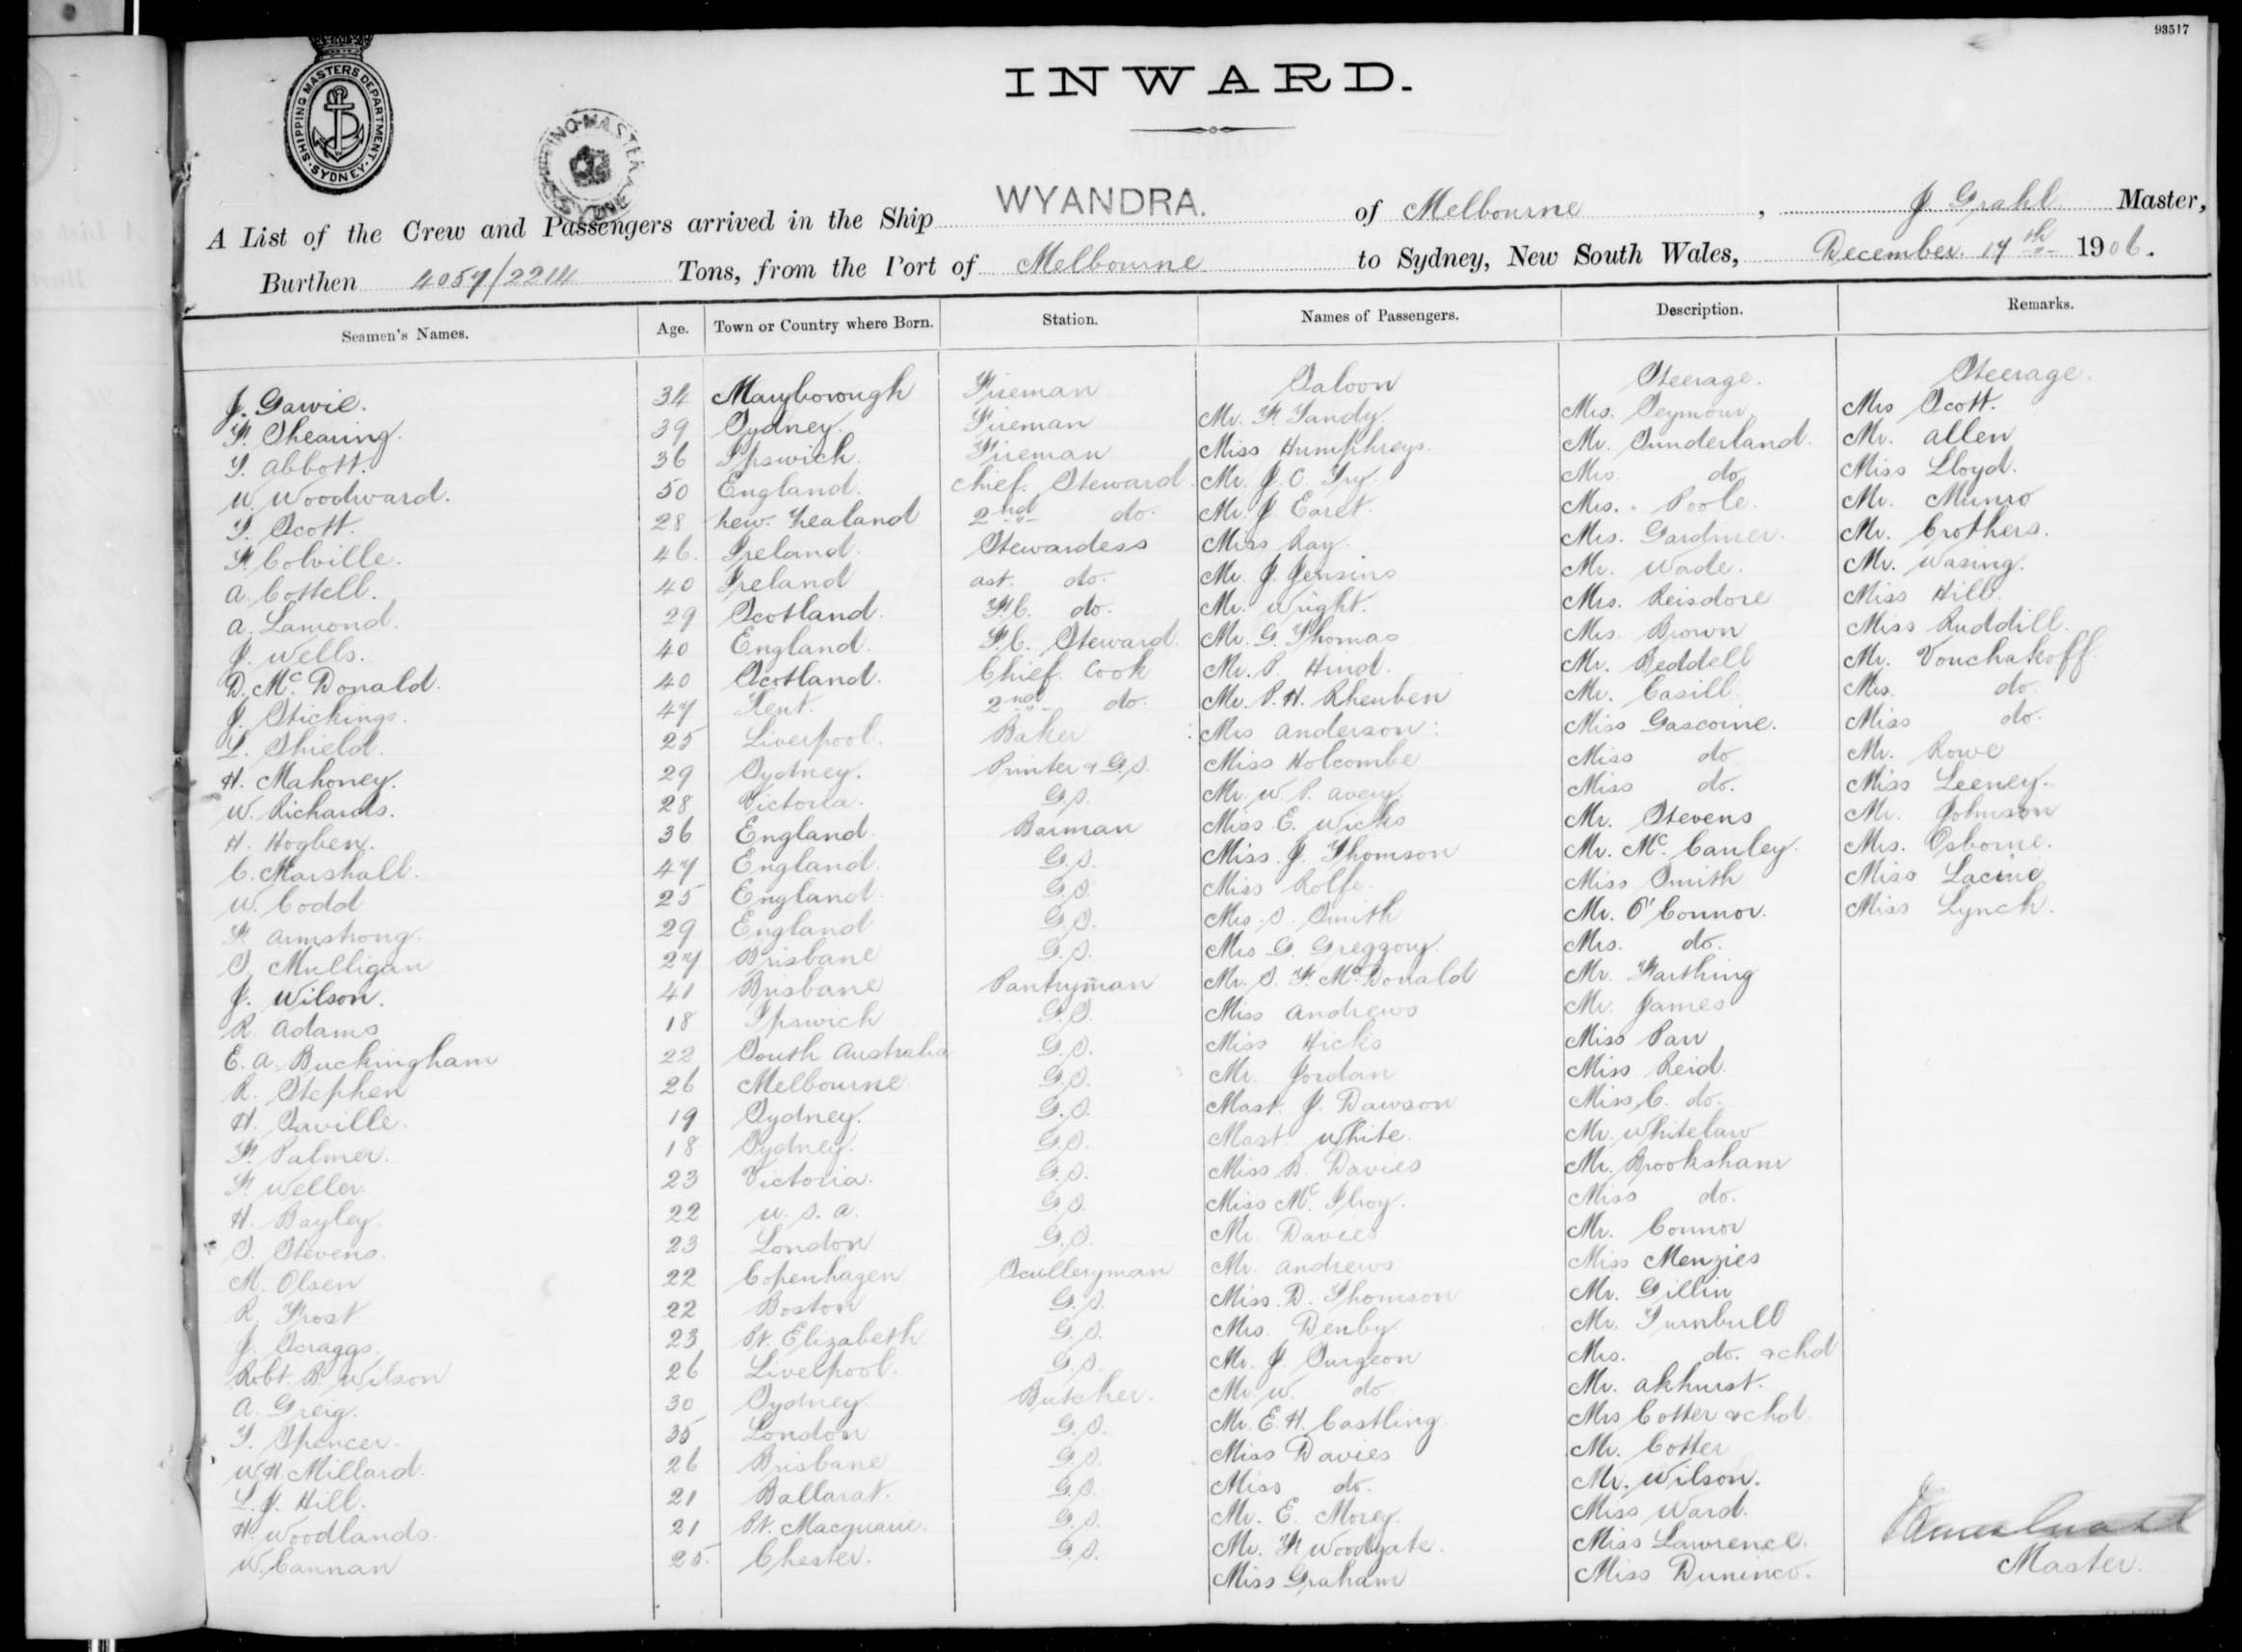 93517
INWARD.
SHIPPING MASTERS DEPARTMENT. SYDNEY
A List of the Crew and Passengers arrived in the Ship WYANDRA. of Melbourne, J Grahl Master,
Burthen 4057/2214 Tons, from the Port of Melbourne to Sydney, New South Wales, December 17th 1906.
Seamen's Names. Age. Town or Country where Born. Station. Names of Passengers. Description. Remarks.
J. Gawie. 34 Maryborough Fireman Saloon Steerage. Steerage.
F. Shearing. 39 Sydney. Fireman Mr. F. Tandy. Mrs. Seymour. Mrs Scott.
T. Abbott. 36 Ipswich. Fireman Miss Humphreys. Mr. Sunderland. Mr. Allen
W. Woodward. 50 England. Chief. Steward. Mr. J. C. Mrs. do. Miss Lloyd.
T. Scott. 28 New Zealand 2nd do. Mr. J. Earet. Mrs. Poole. Mr. Munro
F. Colville. 46. Ireland. Stewardess Miss Ray. Mrs. Gardiner. Mr. Crothers.
A. Cottell. 40 Ireland ast. do. Mr. J. Jensins Mr. Wade. Mr. Wasing.
A. Lamond. 29 Scotland. F.C. do. Mr. Wright. Mrs. Reisdore Miss Hill.
J. Wells. 40 England. F.C. Steward. Mr. G. Thomas Mrs. Brown Miss Ruddill.
D. Mc. Donald. 40 Scotland. Chief. Cook Mr. P. Hind. Mr. Beddell Mr. Vouchakoff.
J. Stickings. 47 Kent. 2nd do. Mr. P. H. Rheuben Mr. Casill. Mrs. do.
L. Shield. 25 Liverpool. Baker Mrs Anderson: Miss Gascoine. Miss do.
H. Mahoney. 29 Sydney. Printer & G.S. Miss Holcombe Miss do. Mr. Rowe
W. Richards. 28 Victoria. G.S. Mr. W. P. Avery. Miss do. Miss Leeney.
H. Hogben. 36 England. Barman Miss E. Wicks Mr. Stevens Mr. Johnson
C. Marshall. 47 England. G.S. Miss J. Thomson Mr. Mc. Cauley. Mrs. Osborne.
W. Codd 25 England. G.S. Miss Rolfe. Miss Smith Miss Lacine
F. Armstrong. 29 England G.S. Mrs. S. Smith Mr. O'Connor. Miss Lynch.
S. Mulligan 27 Brisbane G.S. Mrs G. Greggory. Mrs. do.
J. Wilson. 41 Brisbane Pantryman Mr. S. F. McDonald Mr. Farthing
R. Adams 18 Ipswich G.S. Miss Andrews Mr. James
E. A. Buckingham 22 South Australia G.S. Miss Hicks Miss Parr
R. Stephen 26 Melbourne. G.S. Mr. Jordan Miss Reid.
H. Saville. 19 Sydney. G.S. Mast. J. Dawson Miss C. do.
F. Palmer. 18 Sydney. G.S. Mast White. Mr. Whitelaw
F. Weller. 23 Victoria. G.S. Miss B. Davies Mr. Brooksham
H. Bayley. 22 U.S.A. G.S. Miss Mc. Ilroy. Miss do.
S. Stevens. 23 London G.S. Mr. Davies Mr. Connor
M. Olsen 22 Copenhagen Sculleryman Mr. Andrews Miss Menzies
R. Frost. 22 Boston G.S. Miss. D. Thomson Mr. Gillin
J. Scraggs. 23 Pt. Elizabeth G.S. Mrs. Denby Mr. Turnbull
Robt. B. Wilson 26 Liverpool. G.S. Mr. J. Surgeon Mrs. do. & chd
A. Greig. 30 Sydney. Butcher. Mr. W. do. Mr. Akhurst.
T. Spencer. 35 London G.S. Mr. E. H. Castling. Mrs Cotter & chd
W. H. Millard. 26 Brisbane G.S. Miss Davies Mr. Cotter
L. J. Hill. 21 Ballarat. G.S. Miss do. Mr. Wilson.
H. Woodlands. 21 Pt. Macquarie. G.S. Mr. E. Morey. Miss Ward.
W. Cannan 25. Chester. G.S. Mr. F. Woodgate. Miss Lawrence.
Miss Graham Miss Duninco. Master.